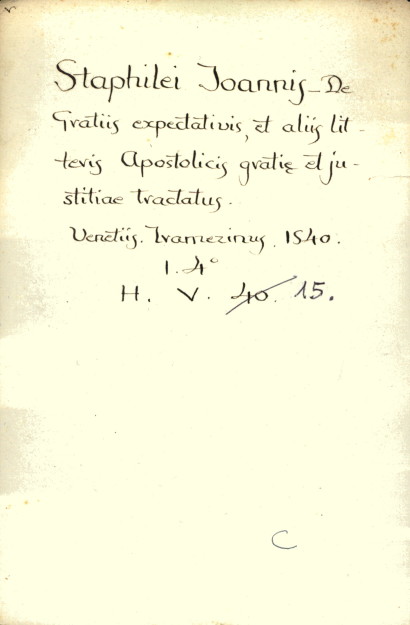 Staphilei Joannis_De
Gratiis expectativis, et aliis lit-
teris Apostolicis gratię et ju-
stitiae tractatus.
Venetiis. Tramezinus. 1540.
1. 4°
H. V. 40. 15.
C